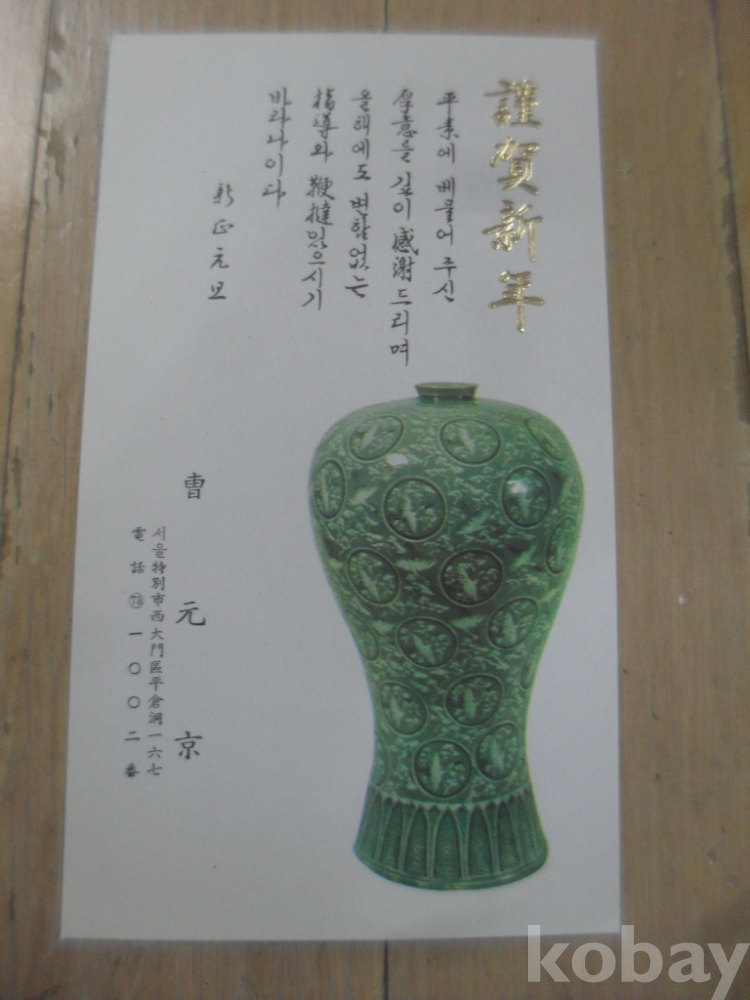 謹賀新年
平素에 베풀어 주신
厚意를 깊이 感謝드리며
올해에도 변함없는
指導와 鞭撻있으시기
바라나이다
新正元旦
曺元京
서울特別市西大門區平倉洞一六七
電話 73 一〇〇二番
kobay